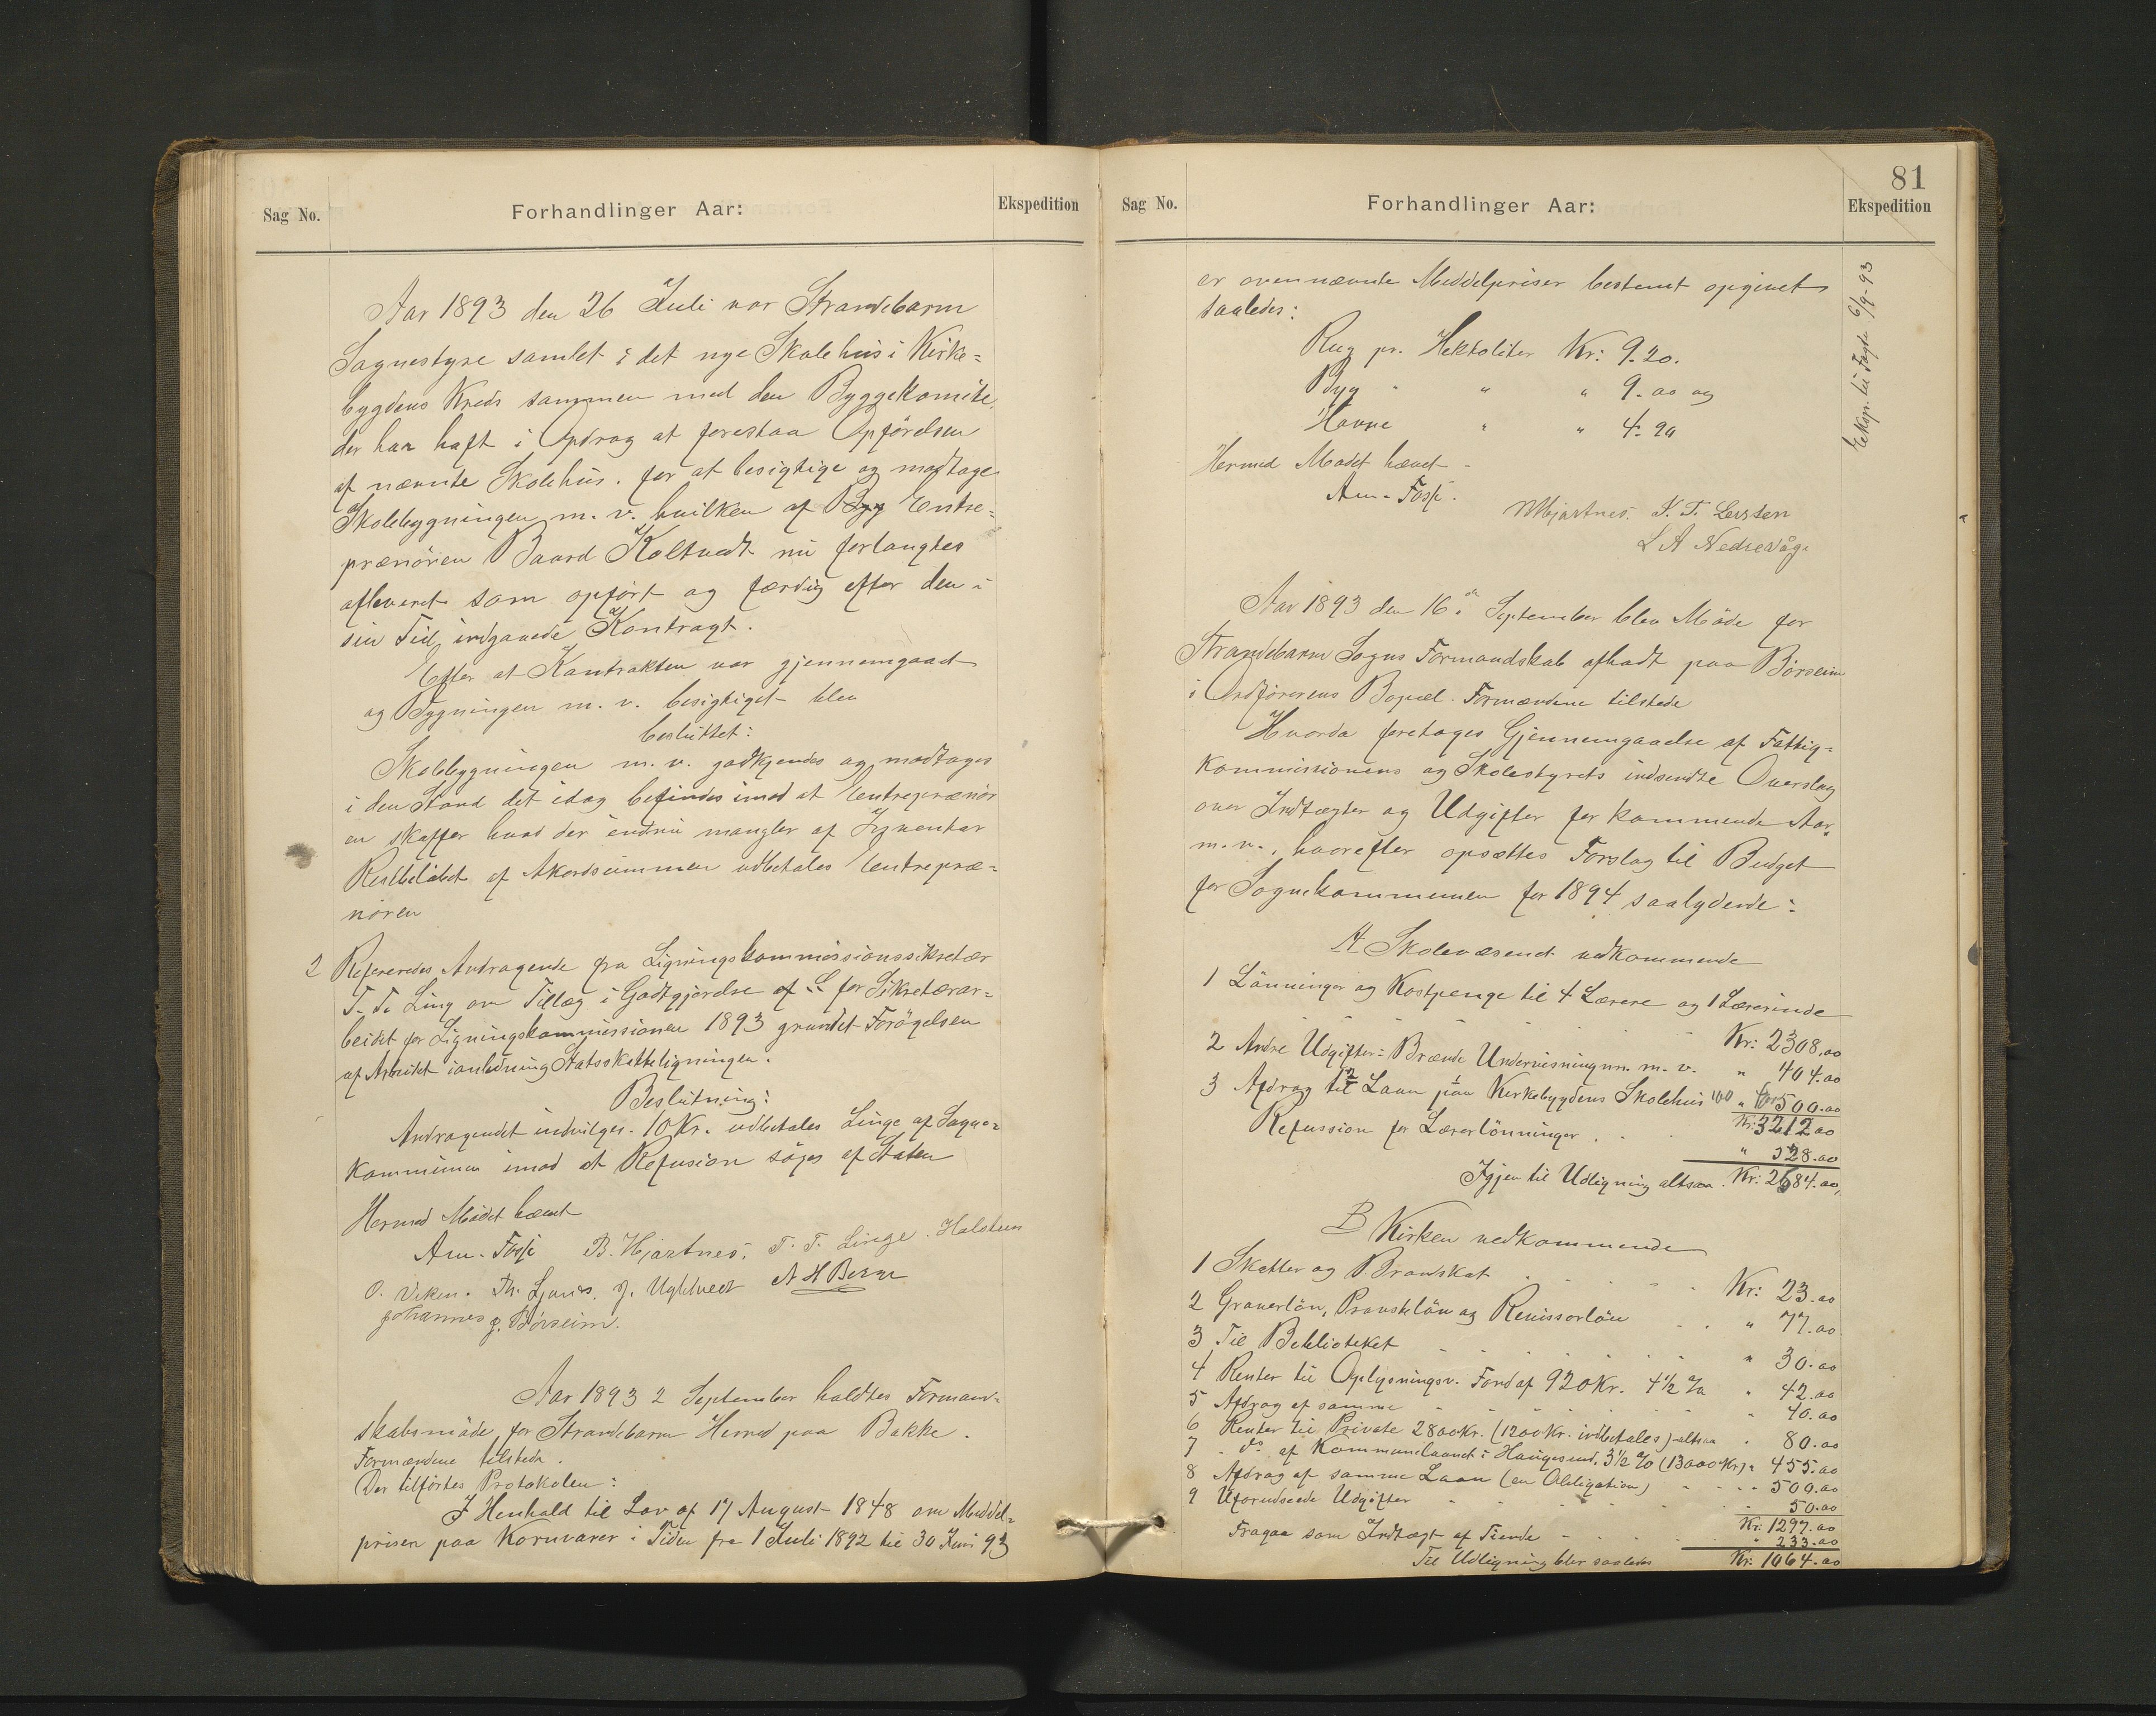 Sag No.
Forhandlinger Aar:
Ekspedition
Aar 1893 den 26 Juli var Strandebarm
Sognestyre samlet i det nye Skolehus i Kirke=
bygdens Kreds sammen med den Byggekomite,
der har haft i Opdrag at forestaa Opførelsen
af nævnte Skolehus. for at besigtige og modtage
Skolebygningen m. v. hvilken af Byg Entre=
prenören Baard Koltvedt nu forlangtes
afleveret som opført og færdig efter den i
sin Tid indgaaede Kontragt.
Efter at Kontrakten var gjennemgaaet
og Bygningen m. v. besigtiget blev
besluttet:
Skolebygningen m. v. godkjendes og modtages
i den Stand det idag befindes imod at Entreprenör
en skaffer hvad der endnu mangler af Inventar
Restbeløbet af Akordsummen udbetales Entrepre=
nören
2 Refereredes Andragende fra Ligningskommissionssekretær
T. T. Ling om Tillæg i Godtgjørelse af for Sekretærar=
beidet for Ligningskommissionen 1893 grundet Forögelsen
af Arbeidet ianledning Statsskatteligningen.
Beslutning:
Andragendet indvilges. 10 Kr. udbetales Linge af Sogne=
kommunen imod at Refusion söges af Staten
Hermed Mödet hævet
Am. Fosse B. Hjartnes. T. T. Linge. Halsteen
O. Viken. Th. Ljones. J. Ugletvedt A H Berge
Johannes J. Börseim.
Aar 1893 2 September holdtes Formand=
skabsmöde for Strandebarm Herred paa Bakke.
Formændene tilstede.
Der tilførtes Protokolen:
I Henhold til Lov af 17 August 1848 om Middel=
prisen paa Kornvarer i Tiden fra 1 Juli 1892 til 30 Juni 93
81
Sag No.
Forhandlinger Aar:
Ekspedition
er ovennævnte Middelpriser bestemt opgivet
saaledes:
Rug pr. Hektoliter Kr: 9.20.
Byg " " " 9.00 og
Havre " " 4.90
Hermed Mødet hævet
Am. Fosse.
Hjartnes. T. Lersten
L A Nedrevåge
Ekspr. til Fogde 6/9-93
Aar 1893 den 16de September blev Möde for
Strandebarm Sogns Formandskab afholdt paa Börseim
i Ordførerens Bopæl. Formændene tilstede
Hvorda foretoges Gjennemgaaelse af Fattig=
kommissionens og Skolestyrets indsendte Overslag
over Indtægter og Udgifter for kommende Aar,
m. v., hvorefter opsættes Forslag til Budget
for Sognekommunen for 1894 saalydende:
A Skolevæsenet vedkommende
1 Lönninger og Kostpenge til 4 Lærere og 1 Lærerinde
Kr: 2308.00
2 Andre Udgifter: Brænde Undervisningsm. m. v. " 404.00
3 Afdrag til Laan paa Kirkebygdens Skolehus " 500.00
Kr: 3212.00
Refussion for Lærerlönninger . . " 528.00
Igjen til Udligning altsaa. Kr: 2684.00
B Kirken vedkommende
1 Skatter og Brandskat . . . Kr: 23.00
2 Graverlön, Provstelön og Revissorlön . . " 77.00
3 Til Biblioteket " 30.00
4 Renter til Oplysningsv. Fond af 920 Kr. 4 1/2 % " 42.00
5 Afdrag af samme " 40.00
6 Renter til Private 2800 Kr. (1200 Kr. indbetales) altsaa " 80.00
7 " do af Kommunelaanet i Haugesund. 3 1/2 % (13000 Kr) " 455.00
8 Afdrag af samme Laan (en Obligation) " 500.00
9 Uforudseede Udgifter 50.00
Kr: 1297.00
Fragaa som Indtægt af Tiende " 233.00
Til Udligning blir saaledes Kr: 1064.00